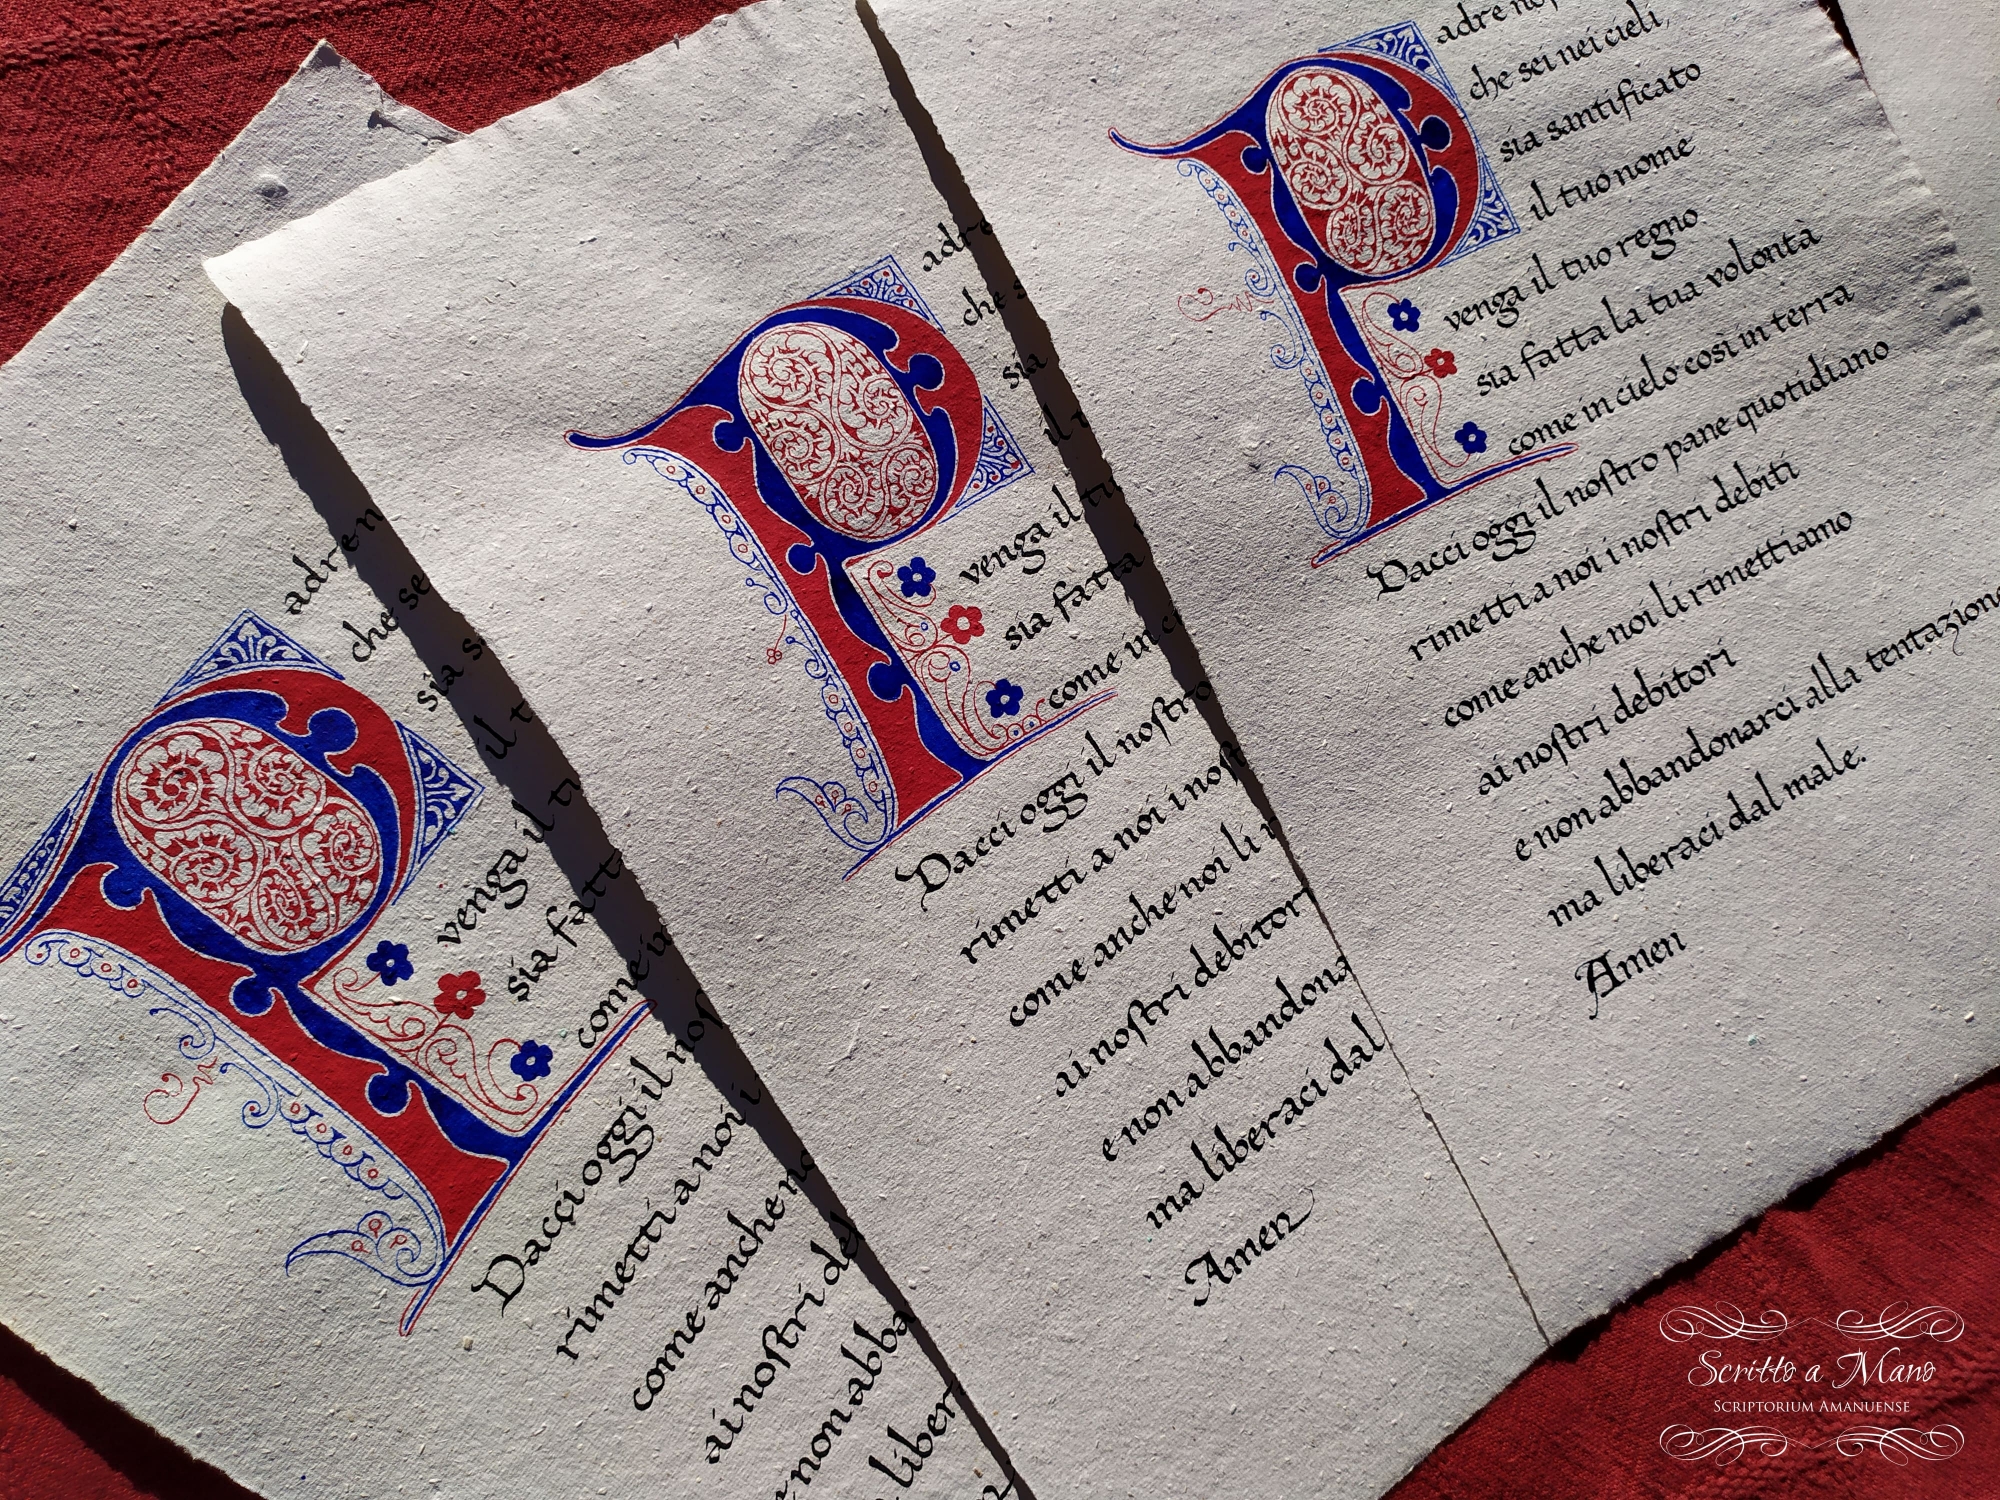 adre n
che se
sia s
il t
venga il tu
sia fatt
come in
Dacci oggi il nos
rimetti a noi i
come anche no
ai nostri de
e non abba
liber
P
adre
che s
sia
il t
venga il tu
sia fatta
come in ci
Dacci oggi il nostro
rimetti a noi i nost
come anche noi li r
ai nostri debitori
e non abbandona
ma liberaci dal
Amen
P
adre no
che sei nei cieli,
sia santificato
il tuo nome
venga il tuo regno
sia fatta la tua volontà
come in cielo così in terra
Dacci oggi il nostro pane quotidiano
rimetti a noi i nostri debiti
come anche noi li rimettiamo
ai nostri debitori
e non abbandonarci alla tentazione
ma liberaci dal male.
Amen
P
Scritto a Mano
SCRIPTORIUM AMANUENSE